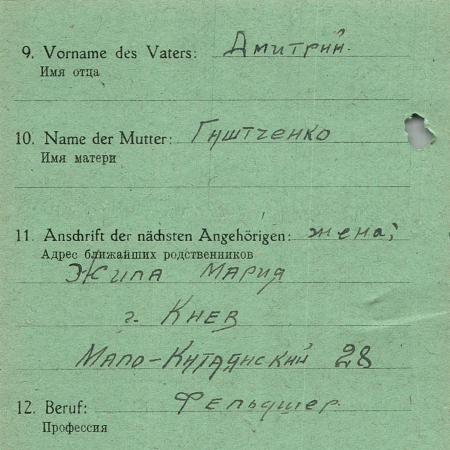 9. Vorname des Vaters: Дмитрий.
Имя отца
10. Name der Mutter: Гиштченко
Имя матери
11. Anschrift der nächsten Angehörigen: жена;
Адрес ближайших родственников
Жила Мария
г. Киев
Мало-Китаянский 28
12. Beruf: Фельдшер.
Профессия